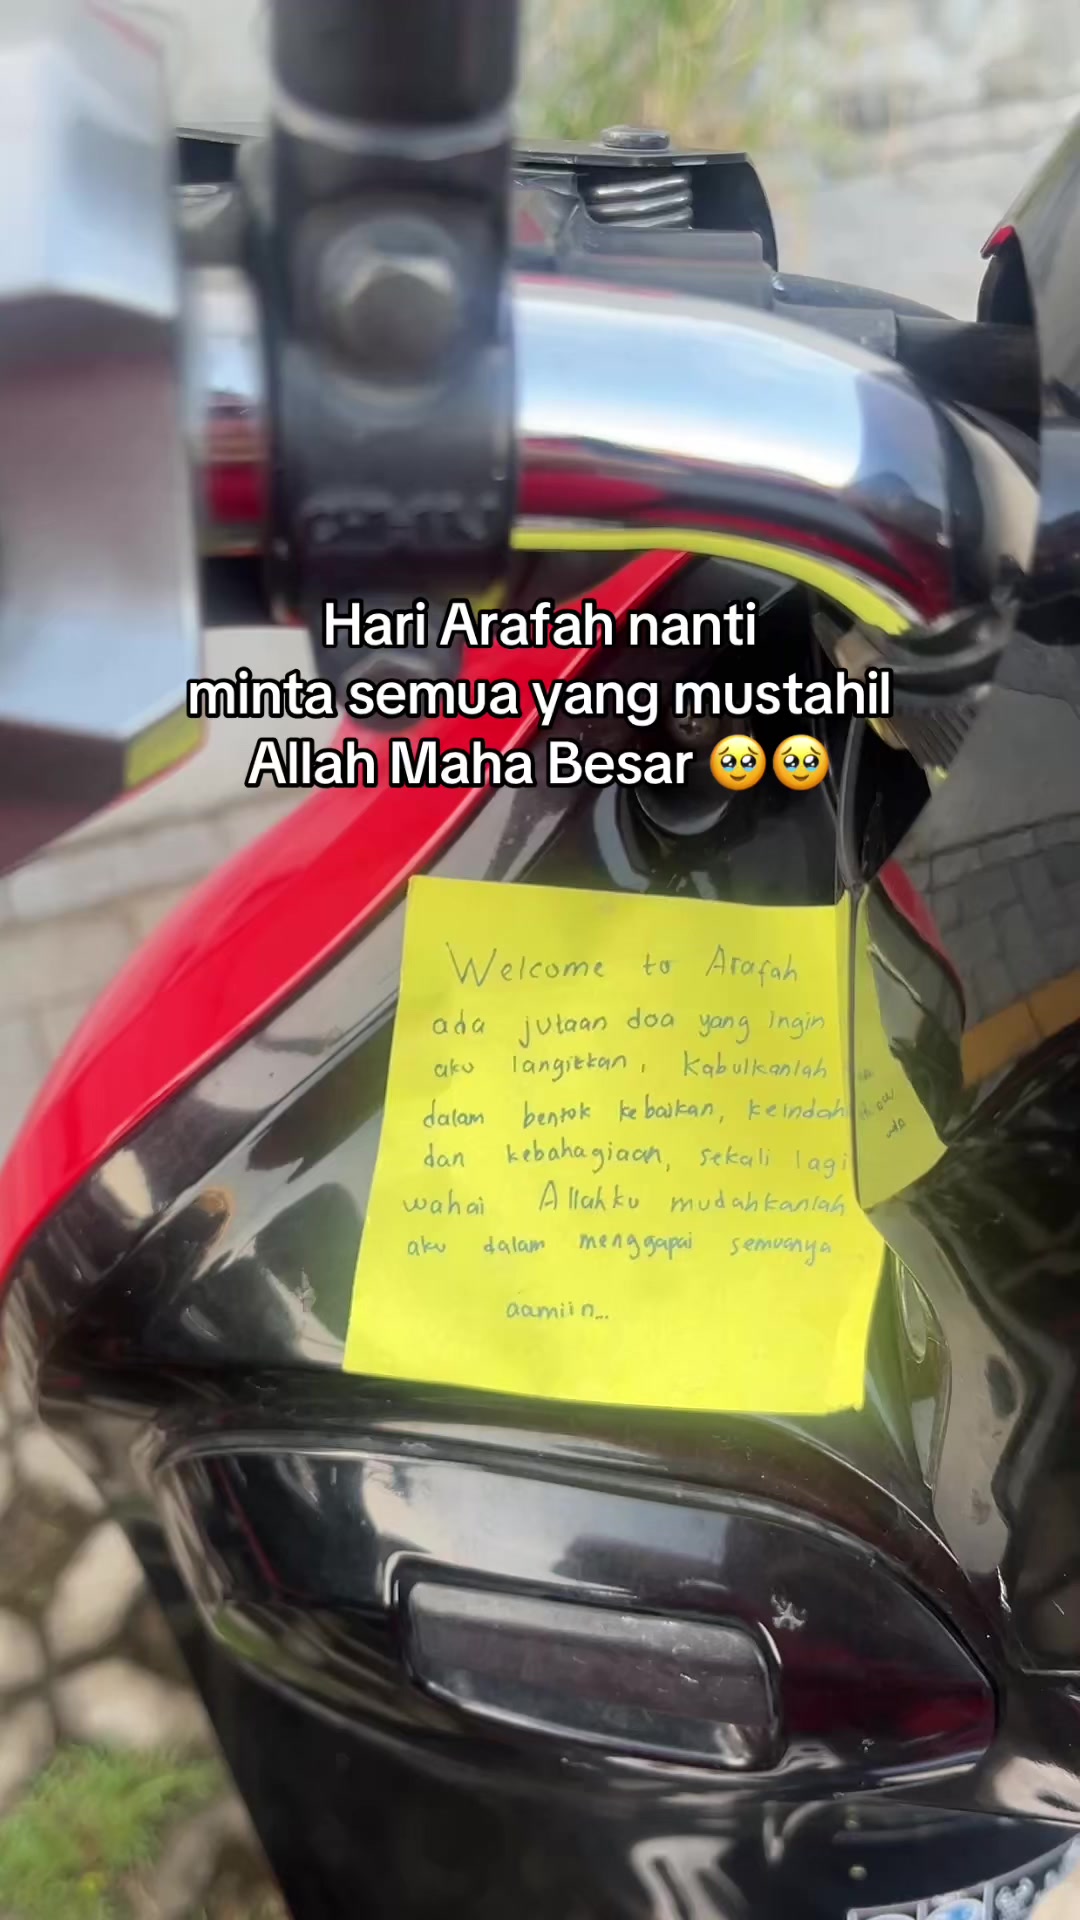 Hari Arafah nanti
minta semua yang mustahil
Allah Maha Besar 🥹🥹
Welcome to Arafah
ada jutaan doa yang Ingin
aku langitkan, Kabulkanlah
dalam bentok kebaikan, keindah
dan kebahagiaan, sekali lagi
wahai Allahku mudahkanlah
aku dalam menggapai semuanya
aamiin...